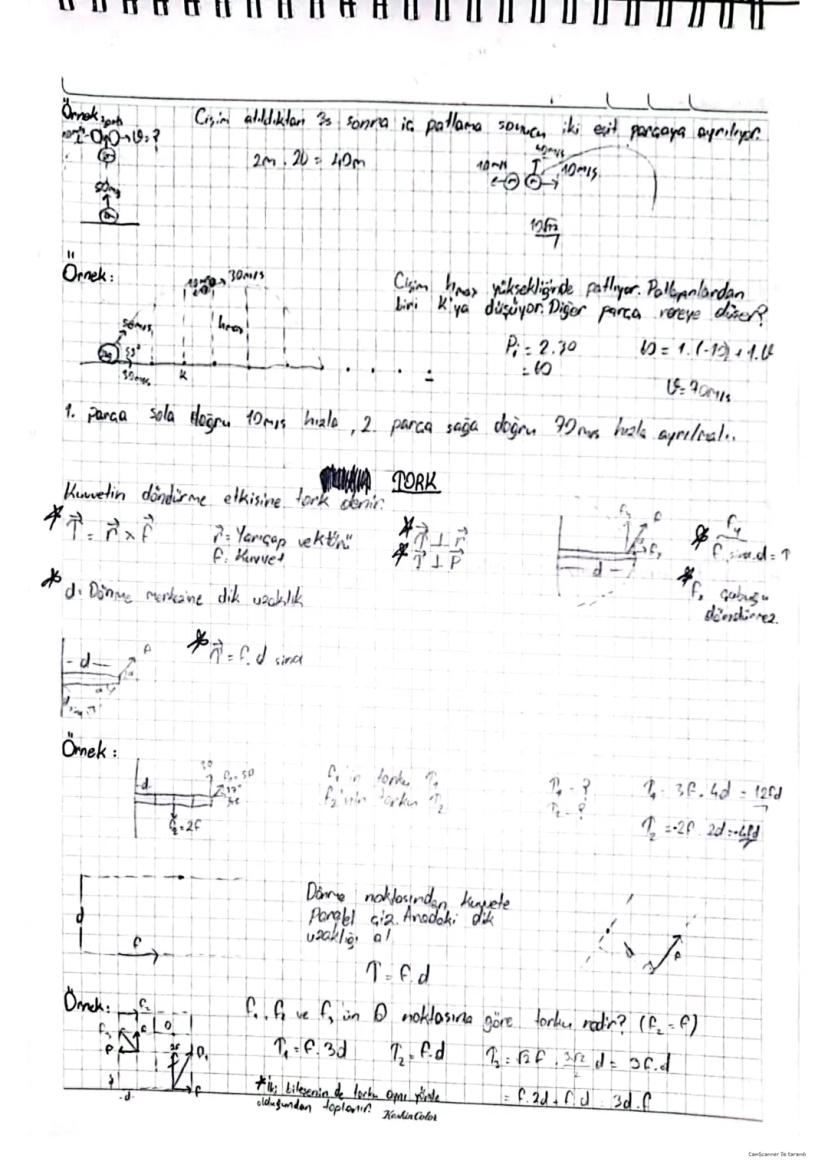 Örnek:
Cisim atıldıktan 3s sonra iç patlama sonucu iki eşit parçaya ayrılıyor.
2m . 20 = 40m
10m/s
10m/s
50m/s
Örnek:
30m/s
Cisim hmax yüksekliğinde patlıyor. Patlayanlardan
biri K'ya düşüyor. Diğer parça nereye düşer?
hmax
50m/s
53°
30m/s
K
Pi = 2.30
= 60
60 = 1.(-10) + 1.V
V = 70m/s
1. parça sola doğru 10m/s hızla, 2. parça sağa doğru 70m/s hızla ayrılmalı.
TORK
Kuvvetin döndürme etkisine tork denir.
T = r x F
r = Yarıçap vektörü
F: Kuvvet
T ⊥ r
T ⊥ F
d
Fy
F.sina.d = T
Fx çubuğu
döndürmez.
d: Dönme merkezine dik uzaklık
T = F.d sina
d
Örnek:
d
F1 = 5F
37°
F2 = 2F
F1'in torku T1
F2'nin torku T2
T1 = ?
T2 = ?
T1 = 3F.4d = 12Fd
T2 = -2F.2d = -4Fd
Dönme noktasından kuvvete
Paralel çiz. Aradaki dik
uzaklığı al
d
F
T = F.d
d
F
Örnek:
F1, F2 ve F3'ün O noktasına göre torku nedir? (F2 = F)
T1 = F.3d
T2 = F.d
T3 = √2F . 3√2/2 d = 3F.d
= F.2d + F.d = 3d.F
* İki bileşenin de torku aynı yönde
olduğundan toplanır.
KeskinColor
CamScanner ile tarandı